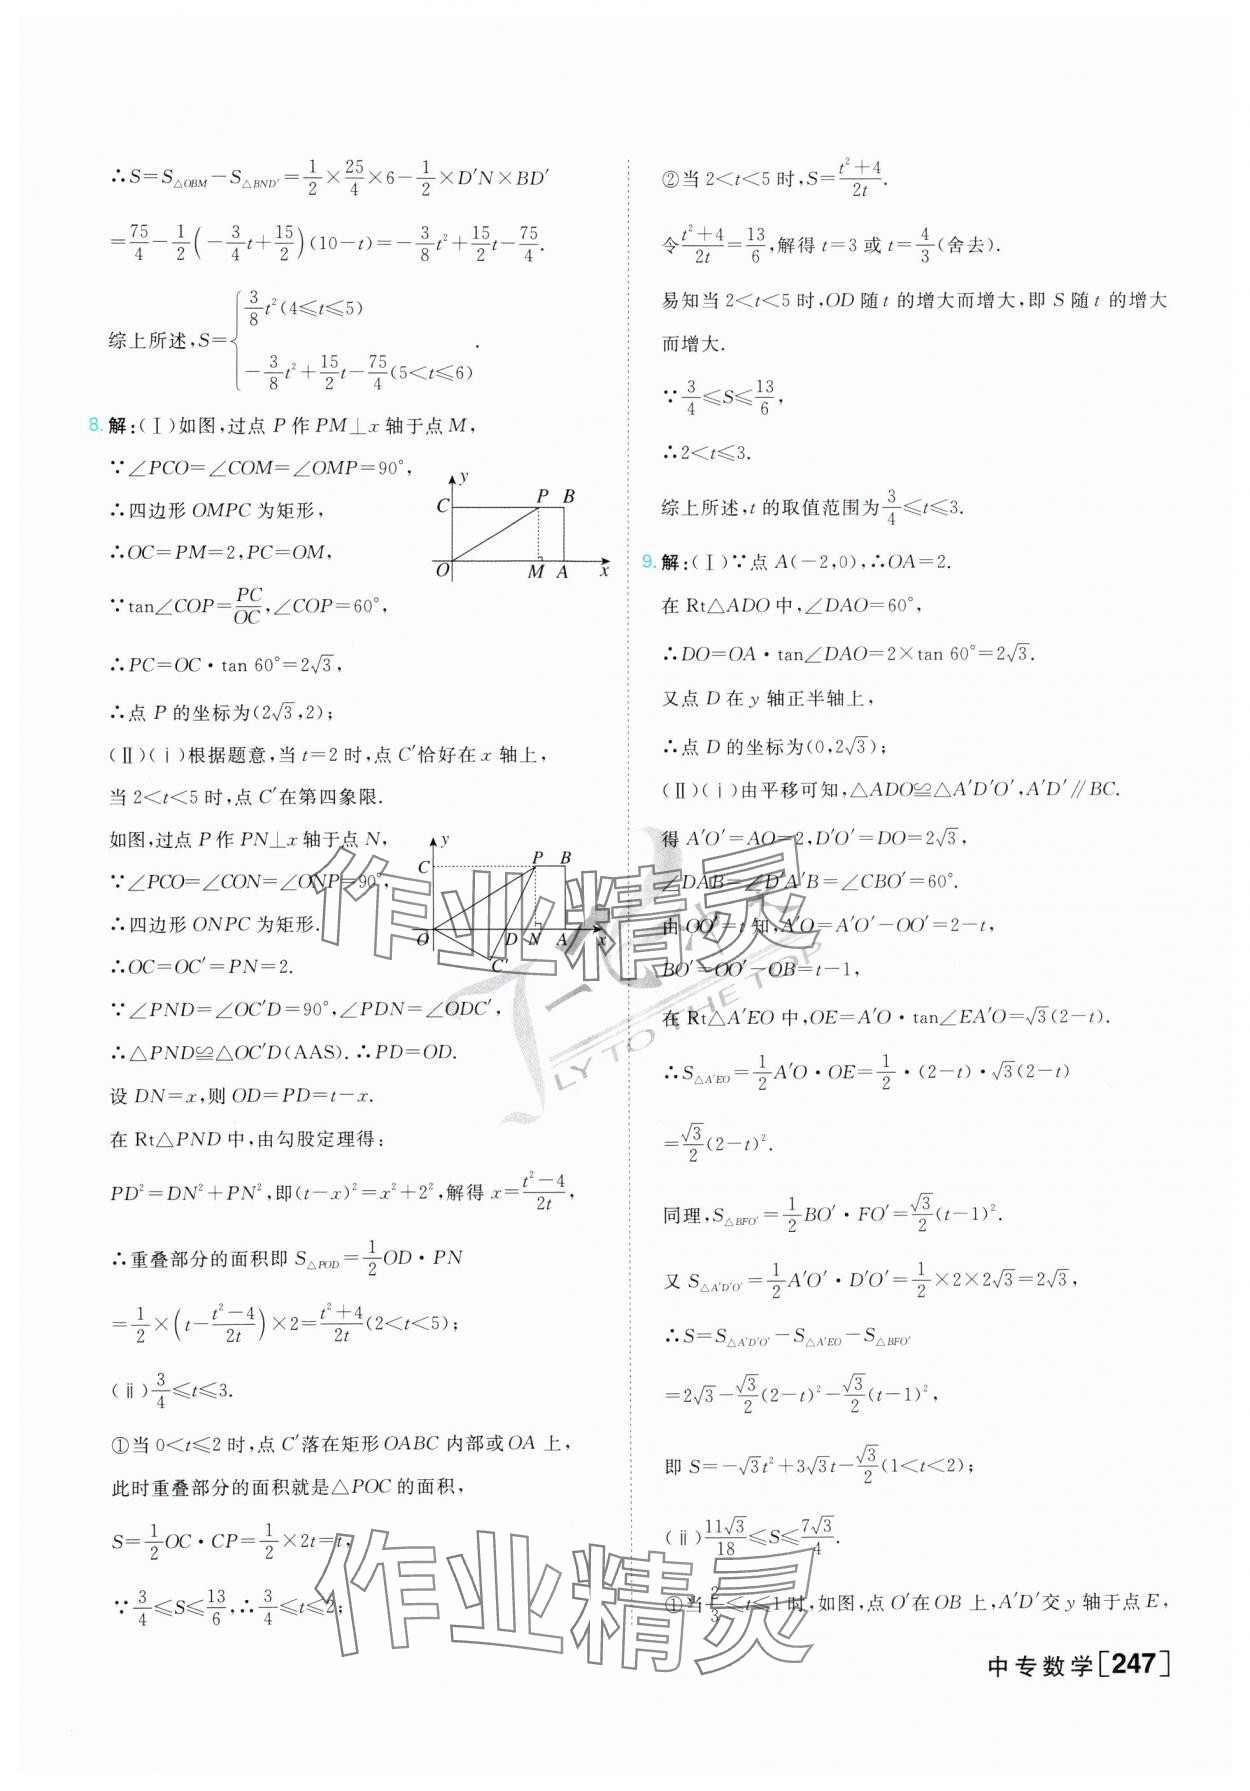 ∴S=S△OBM-S△BND′=1/2×25/4×6-1/2×D′N×BD′
=75/4-1/2(-3/4t+15/2)(10-t)=-3/8t²+15/2t-75/4.
综上所述,S={3/8t²(4≤t≤5)
-3/8t²+15/2t-75/4(5<t≤6).
8. 解:(Ⅰ)如图,过点P作PM⊥x轴于点M,
∵∠PCO=∠COM=∠OMP=90°,
∴四边形OMPC为矩形,
∴OC=PM=2,PC=OM,
∵tan∠COP=PC/OC,∠COP=60°,
∴PC=OC·tan 60°=2√3,
∴点P的坐标为(2√3,2);
y
C P B
O M A x
(Ⅱ)(ⅰ)根据题意,当t=2时,点C′恰好在x轴上,
当2<t<5时,点C′在第四象限.
如图,过点P作PN⊥x轴于点N,
∵∠PCO=∠CON=∠ONP=90°,
∴四边形ONPC为矩形.
∴OC=OC′=PN=2.
y
C P B
O D N A x
C′
∵∠PND=∠OC′D=90°,∠PDN=∠ODC′,
∴△PND≌△OC′D(AAS).∴PD=OD.
设DN=x,则OD=PD=t-x.
在Rt△PND中,由勾股定理得:
PD²=DN²+PN²,即(t-x)²=x²+2²,解得x=(t²-4)/2t,
∴重叠部分的面积即S△POD=1/2OD·PN
=1/2×(t-(t²-4)/2t)×2=(t²+4)/2t(2<t<5);
(ⅱ)3/4≤t≤3.
①当0<t≤2时,点C′落在矩形OABC内部或OA上,
此时重叠部分的面积就是△POC的面积,
S=1/2OC·CP=1/2×2t=t,
∵3/4≤S≤13/6,∴3/4≤t≤2;
②当2<t<5时,S=(t²+4)/2t.
令(t²+4)/2t=13/6,解得t=3或t=4/3(舍去).
易知当2<t<5时,OD随t的增大而增大,即S随t的增大
而增大.
∵3/4≤S≤13/6,
∴2<t≤3.
综上所述,t的取值范围为3/4≤t≤3.
9. 解:(Ⅰ)∵点A(-2,0),∴OA=2.
在Rt△ADO中,∠DAO=60°,
∴DO=OA·tan∠DAO=2×tan 60°=2√3.
又点D在y轴正半轴上,
∴点D的坐标为(0,2√3);
(Ⅱ)(ⅰ)由平移可知,△ADO≌△A′D′O′,A′D′∥BC.
得A′O′=AO=2,D′O′=DO=2√3,
∠DAB=∠D′A′B=∠CBO′=60°.
由OO′=t知,A′O=A′O′-OO′=2-t,
BO′=OO′-OB=t-1,
在Rt△A′EO中,OE=A′O·tan∠EA′O=√3(2-t).
∴S△A′EO=1/2A′O·OE=1/2·(2-t)·√3(2-t)
=√3/2(2-t)².
同理,S△BFO′=1/2BO′·FO′=√3/2(t-1)².
又S△A′D′O′=1/2A′O′·D′O′=1/2×2×2√3=2√3,
∴S=S△A′D′O′-S△A′EO-S△BFO′
=2√3-√3/2(2-t)²-√3/2(t-1)²,
即S=-√3t²+3√3t-√3/2(1<t<2);
(ⅱ)11√3/18≤S≤7√3/4.
①当2/3≤t≤1时,如图,点O′在OB上,A′D′交y轴于点E,
作业精灵
作业精灵
LY TO THE TOP
中专数学[247]